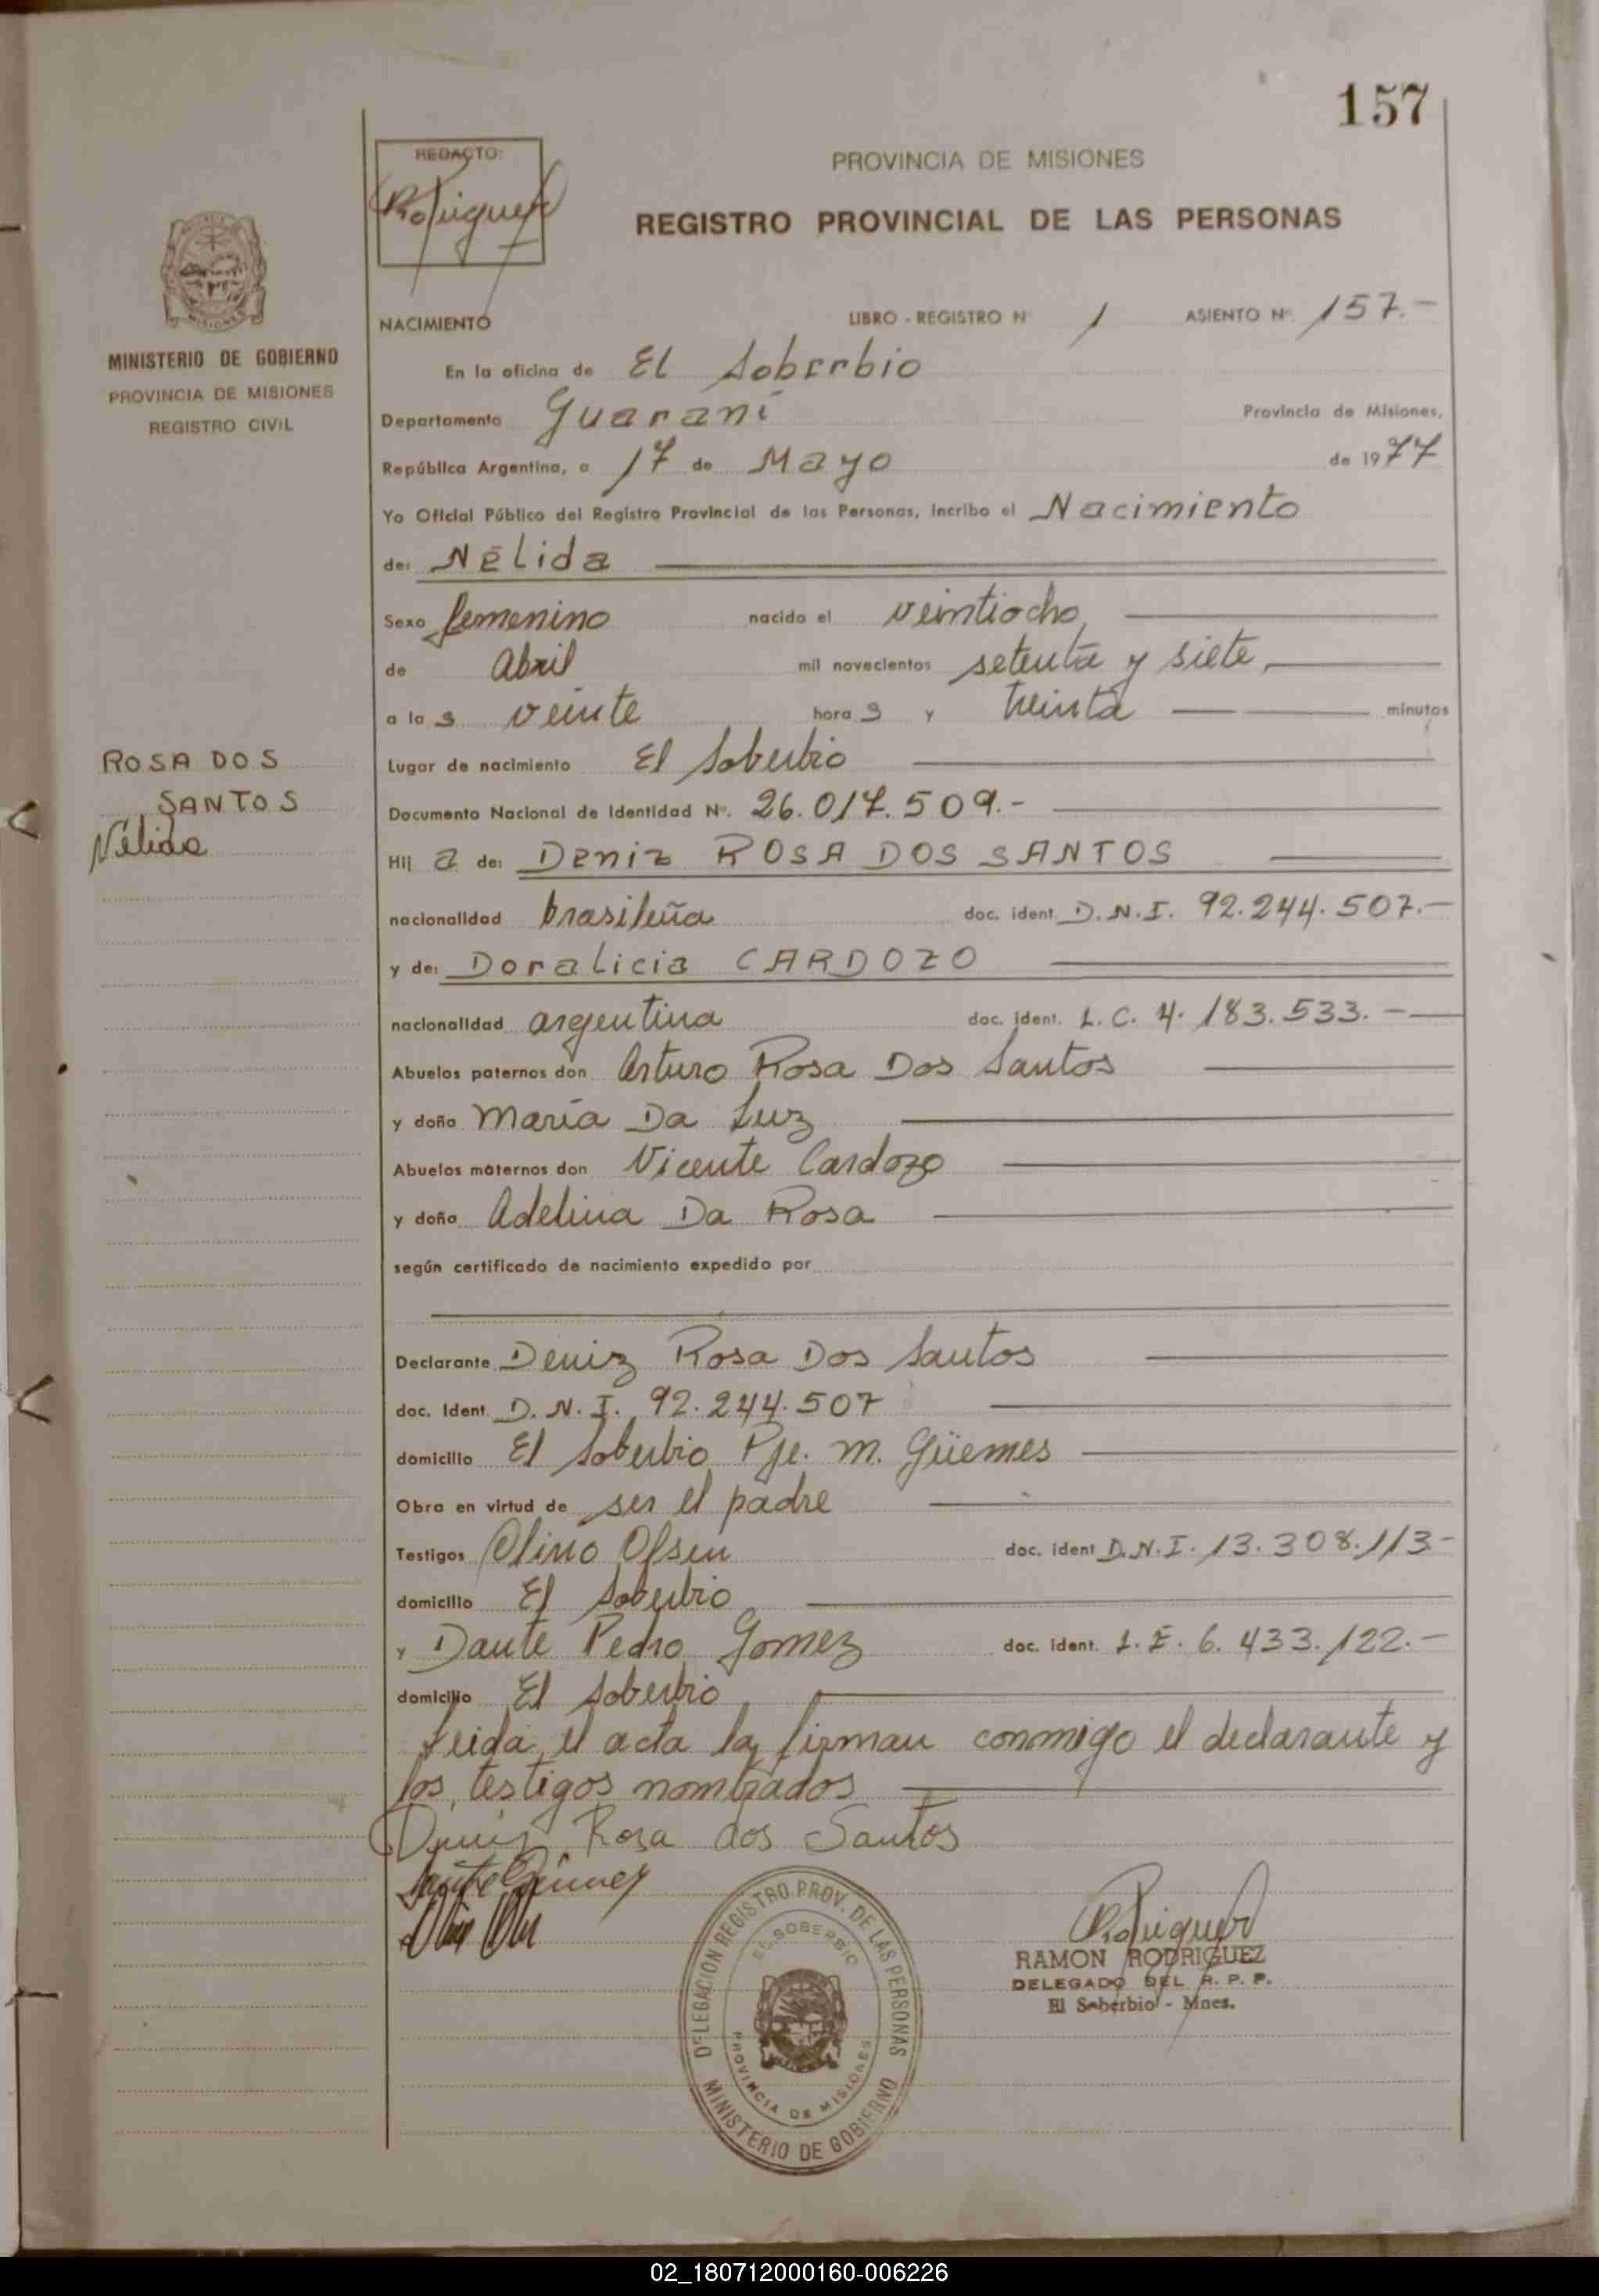 157
REDACTO:
Rodriguez
PROVINCIA DE MISIONES
REGISTRO PROVINCIAL DE LAS PERSONAS
MISIONES
MINISTERIO DE GOBIERNO
PROVINCIA DE MISIONES
REGISTRO CIVIL
NACIMIENTO LIBRO - REGISTRO Nº 1 ASIENTO Nº 157.-
En la oficina de El Soberbio
Departamento Guaraní Provincia de Misiones,
República Argentina, a 17 de Mayo de 1977
Yo Oficial Público del Registro Provincial de las Personas, incribo el Nacimiento
de: Nélida
Sexo femenino nacido el veintiocho,
de Abril mil novecientos setenta y siete,
a la s veinte hora s y treinta minutos
Lugar de nacimiento El Soberbio
Documento Nacional de Identidad Nº. 26.017.509.-
ROSA DOS
SANTOS
Nélida
Hij a de: Deniz ROSA DOS SANTOS
nacionalidad brasileña doc. ident. D.N.I. 92.244.507.-
y de: Doralicia CARDOZO
nacionalidad argentina doc. ident. L.C. 4.183.533.-
Abuelos paternos don Arturo Rosa Dos Santos
y doña María Da Luz
Abuelos maternos don Vicente Cardozo
y doña Adelina Da Rosa
según certificado de nacimiento expedido por
Declarante Deniz Rosa Dos Santos
doc. Ident. D.N.I. 92.244.507
domicilio El Soberbio Pje. M. Güemes
Obra en virtud de ser el padre
Testigos Olino Olsen doc. ident D.N.I. 13.308.113-
domicilio El Soberbio
y Dante Pedro Gomez doc. ident. L.E. 6.433.122.-
domicilio El Soberbio
Leida el acta la firman conmigo el declarante y
los testigos nombrados
Deniz Rosa dos Santos
Rodriguez
RAMON RODRIGUEZ
DELEGADO DEL R. P. P.
El Soberbio - Mnes.
DELEGACION REGISTRO PROV. DE LAS PERSONAS
EL SOBERBIO
PROVINCIA DE MISIONES
MINISTERIO DE GOBIERNO
02_180712000160-006226